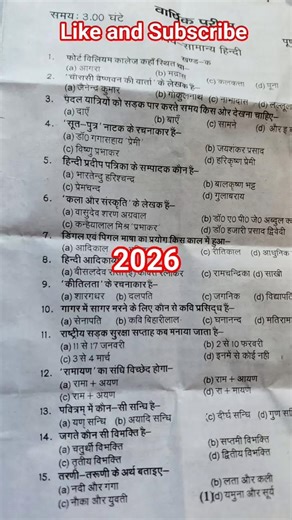 समय: 3.00 घंटे
वार्षिक परी
Like and Subscribe
सामान्य हिन्दी
खण्ड-क
1. फोर्ट विलियम कालेज कहाँ स्थित था-
(a) आगरा (b) मद्रास (c) कलकत्ता (d) पूना
2. 'चौरासी वैष्णवन की वार्ता' के लेखक है-
(a) जैनेन्द्र कुमार (b) गोकुलनाथ (c) नाभादास
3. पैदल यात्रियों को सड़क पार करते समय किस ओर देखना चाहिए-
(a) दाएँ (b) बाएँ (c) सामने
4. 'सूत-पुत्र' नाटक के रचनाकार है-
(a) डॉ0 गंगासहाय 'प्रेमी' (b) जयशंकर प्रसाद
(c) विष्णु प्रभाकर (d) हरिकृष्ण प्रेमी
5. हिन्दी प्रदीप पत्रिका के सम्पादक कौन है-
(a) भारतेन्दु हरिश्चन्द्र (b) बालकृष्ण भट्ट
(c) प्रेमचन्द (d) गुलाबराय
6. 'कला और संस्कृति' के लेखक है-
(a) वासुदेव शरण अग्रवाल (b) डॉ0 ए0 पी0 जे0 अब्दुल क
(c) कन्हैयालाल मिश्र 'प्रभाकर' (d) डॉ0 हजारी प्रसाद द्विवेदी
7. डिंगल एवं पिंगल भाषा का प्रयोग किस काल में हुआ-
(a) आदिकाल (c) रीतिकाल (d) आधुनिक
2026
8. हिन्दी आदिका
(a) बीसलदेव रास (c) रामचन्द्रिका (d) साखी
9. 'कीर्तिलता' के रचनाकार है-
(a) शारंगधर (b) दलपति (c) जगनिक (d) विद्यापति
10. गागर में सागर भरने के लिए कौन से कवि प्रसिद्ध है-
(a) सेनापति (b) कवि बिहारीलाल (c) घनानन्द (d) मतिराम
11. राष्ट्रीय सड़क सुरक्षा सप्ताह कब मनाया जाता है-
(a) 11 से 17 जनवरी (b) 2 से 10 फरवरी
(c) 3 से 4 मार्च (d) इनमें से कोई नहीं
12. 'रामायण' का संधि विच्छेद होगा-
(a) रामा + अयण (b) राम + आयण
(c) राम + अयण (d) रा + मायण
13. पवित्रम् में कौन-सी सन्धि है-
(a) यण् सन्धि (b) अयादि सन्धि (c) दीर्घ सन्धि (d) गुण स
14. जगते कौन सी विभक्ति है-
(a) चतुर्थी विभक्ति (b) सप्तमी विभक्ति
(c) तृतीय विभक्ति (d) द्वितीय विभक्ति
15. तरणी-तरूणी के अर्थ बताइए-
(a) नदी और गंगा (b) लता और कली
(c) नौका और युवती (d) यमुना और सूर्य
(1)